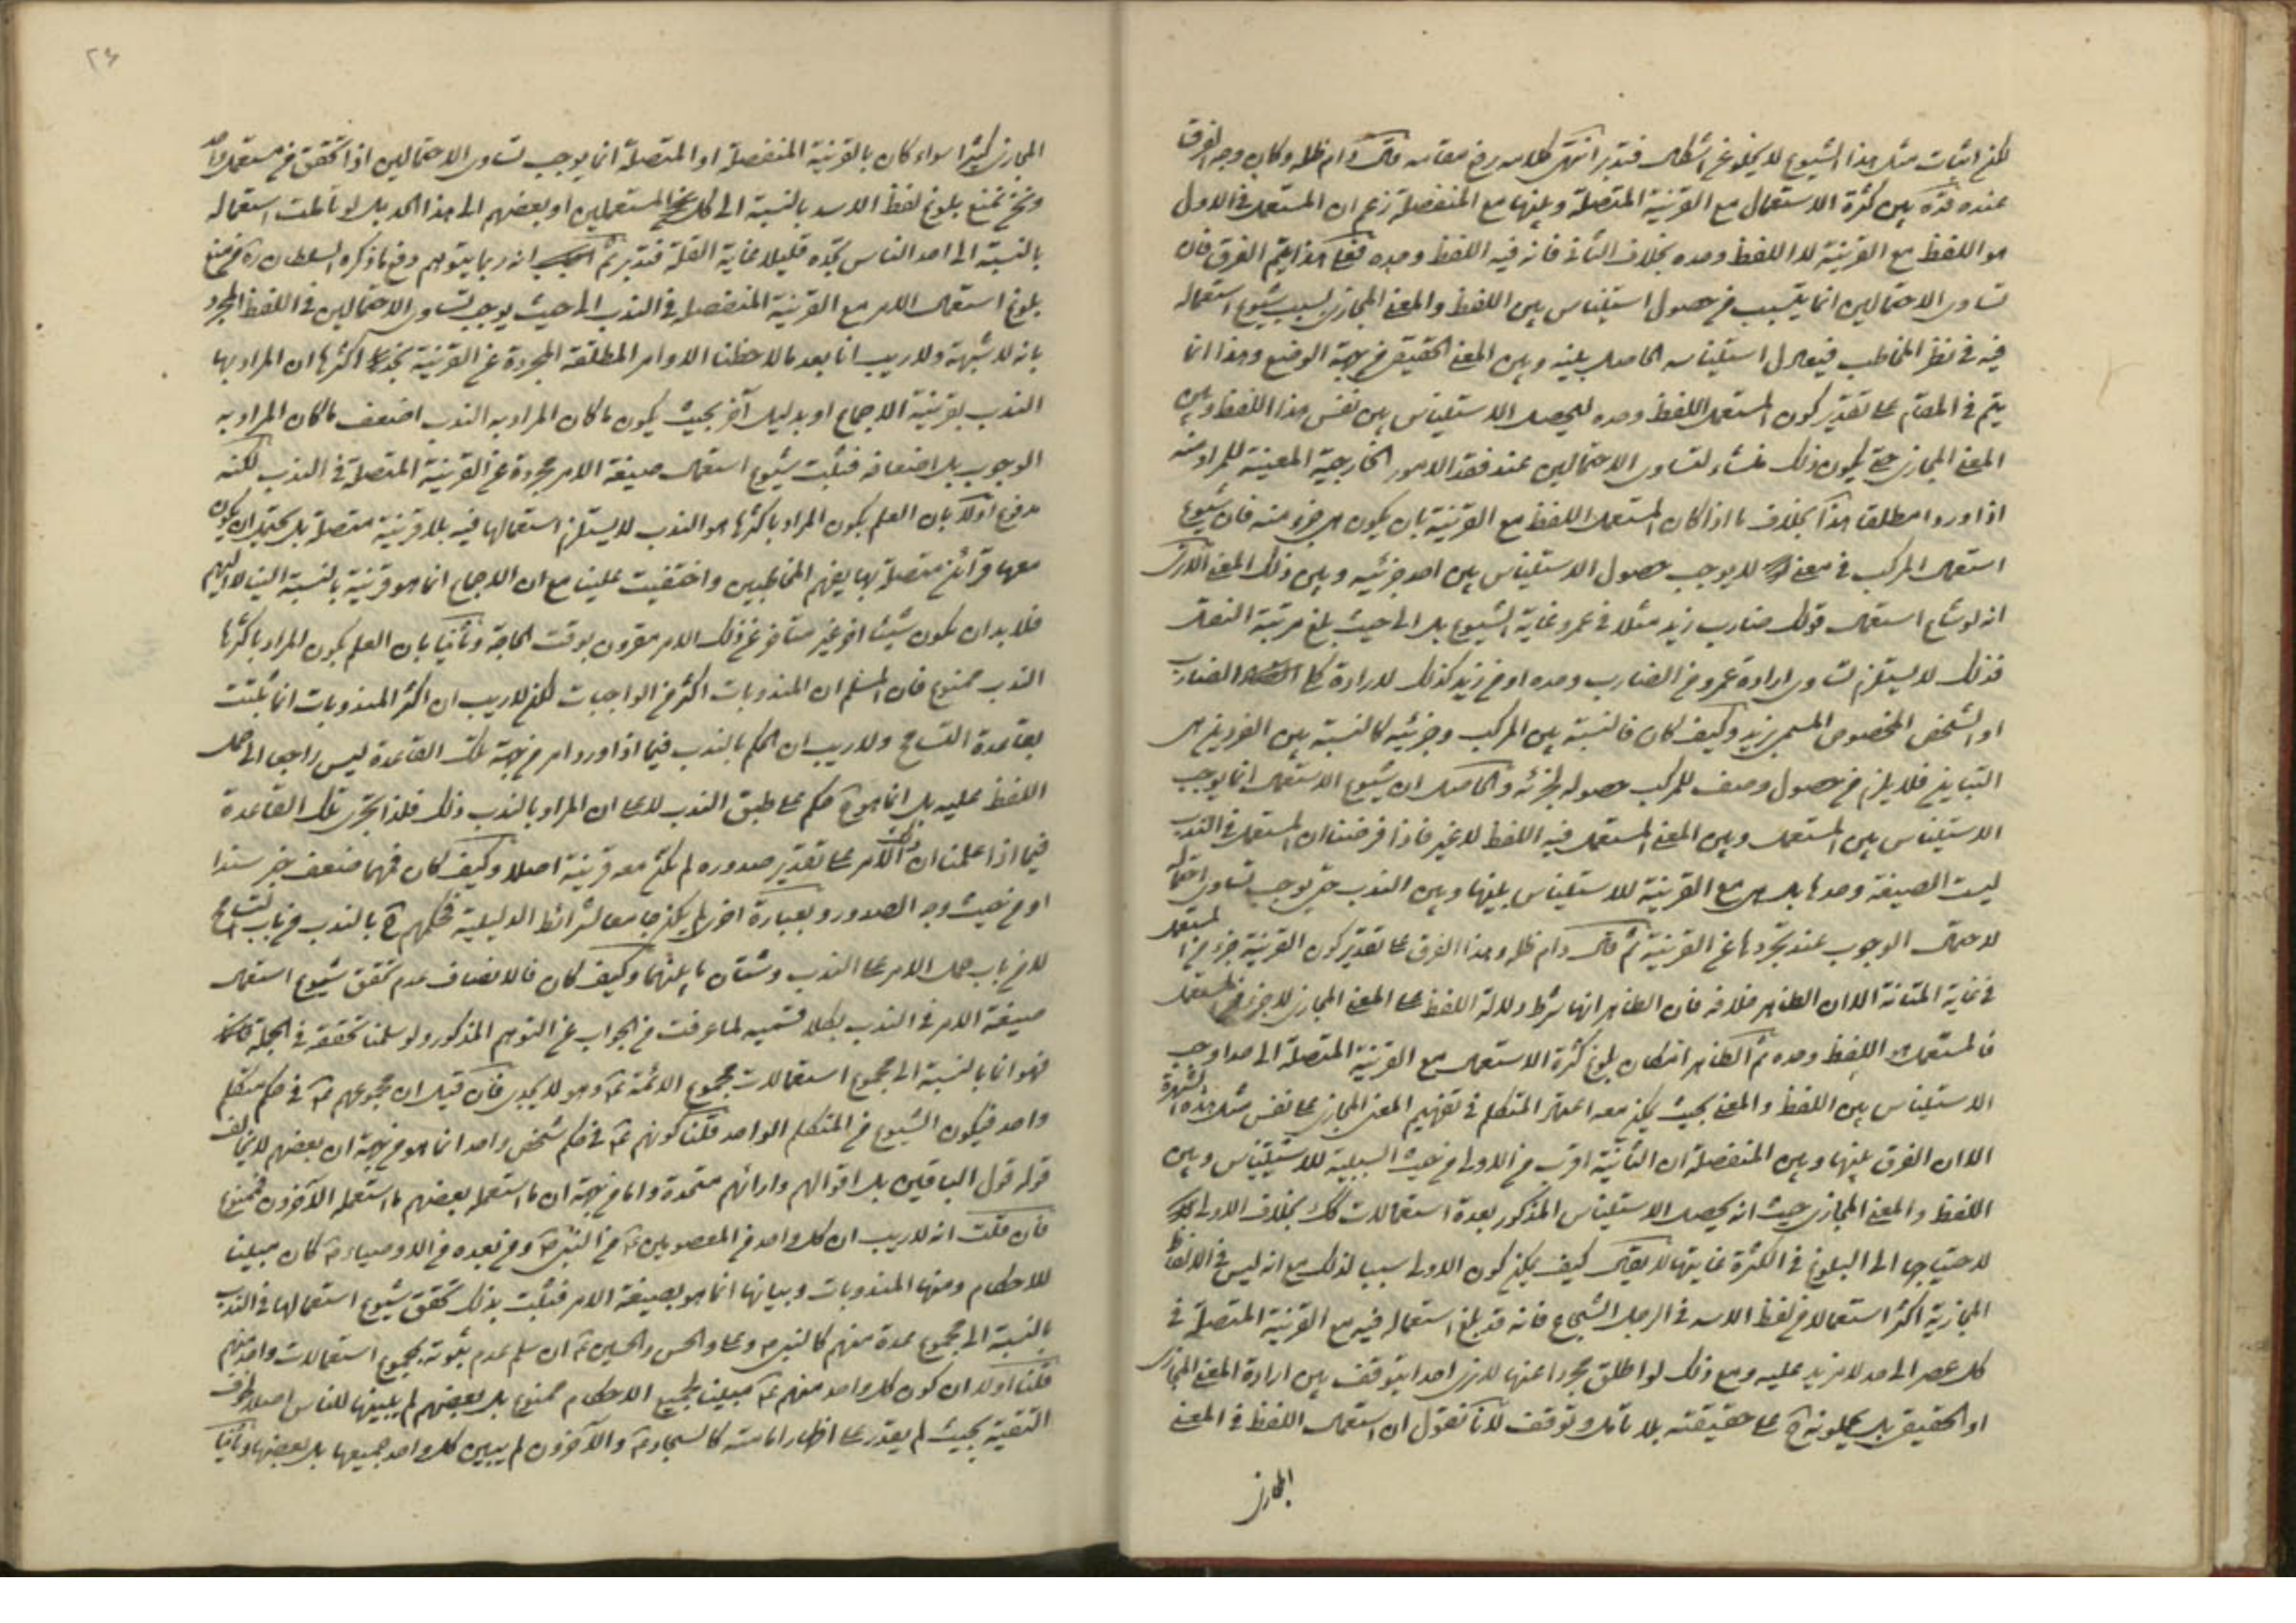 لكن اثبات مثل هذا الشيوع لا يخلو عن اشكال فتدبر انتهى كلامه رفع مقامه قال دام ظله وكان وجه الفرق
عنده قده بين كثرة الاستعمال مع القرينة المتصلة وبينها مع المنفصلة زعم ان المستعمل في الاول
هو اللفظ مع القرينة لا اللفظ وحده بخلاف الثاني فانه فيه اللفظ وحده فعلى هذا يتم الفرق فان
تساوى الاحتمالين انما يتسبب من حصول استيناس بين اللفظ والمعنى المجازى بسبب شيوع استعماله
فيه في نظر المخاطب فيعادل استيناسه الحاصل بينه وبين المعنى الحقيقى من جهة الوضع وهذا انما
يتم في المقام على تقدير كون المستعمل اللفظ وحده ليحصل الاستيناس بين نفس هذا اللفظ وبين
المعنى المجازى حتى يكون ذلك منشاء لتساوى الاحتمالين عند فقد الامور الخارجية المعينة للمراد منه
اذا ورد مطلقا هذا بخلاف ما اذا كان المستعمل اللفظ مع القرينة بان يكون هى جزء منه فان شيوع
استعمال المركب في معنى لا يوجب حصول الاستيناس بين احد جزئيه وبين ذلك المعنى الا ترى
انه لو شاع استعمال قولك ضارب زيد مثلا في عمرو غاية الشيوع بل الى حيث بلغ مرتبة النقل
فذلك لا يستلزم تساوى ارادة عمرو من الضارب وحده او من زيد كذلك لارادة كلى الضارب
او الشخص المخصوص المسمى بزيد وكيف كان فالنسبة بين المركب وجزئيه كالنسبة بين الفردين هى
التباين فلا يلزم من حصول وصف للمركب حصوله لجزئه والحاصل ان شيوع الاستعمال انما يوجب
الاستيناس بين المستعمل وبين المعنى المستعمل فيه اللفظ لا غير فاذا فرضنا ان المستعمل في الندب
ليست الصيغة وحدها بل هى مع القرينة فلا استيناس بينها وبين الندب حتى يوجب تساوى احتماله
لاحتمال الوجوب عند تجردها عن القرينة ثم قال دام ظله وهذا الفرق على تقدير كون القرينة جزء من المستعمل
في غاية المتانة الا ان الظاهر خلافه فان الظاهر انها شرط دلالة اللفظ على المعنى المجازى لا جزء من المستعمل
فالمستعمل اللفظ وحده ثم الظاهر امكان بلوغ كثرة الاستعمال مع القرينة المتصلة الى حد اوجب
الاستيناس بين اللفظ والمعنى بحيث يمكن معه اعتماد المتكلم في تفهيم المعنى المجازى على نفس مثل هذه الشهرة
الا ان الفرق بينها وبين المنفصلة ان الثانية اقرب من الاولى من حيث السببية للاستيناس وبين
اللفظ والمعنى المجازى حيث انه يحصل الاستيناس المذكور بعدة استعمالات كك بخلاف الاولى
لاحتياجها الى البلوغ في الكثرة غايتها لا يقال كيف يمكن كون الاولى سببا لذلك مع انه ليس في الالفاظ
المجازية اكثر استعمالا من لفظ الاسد في الرجل الشجاع فانه قد بلغ استعماله فيه مع القرينة المتصلة في
كل عصر الى حد لا مزيد عليه ومع ذلك لو اطلق مجردا عنها لا نرى احدا يتوقف بين ارادة المعنى المجازى
او الحقيقى بل يحملونه ح على حقيقته بلا تامل وتوقف لانا نقول ان استعمال اللفظ في المعنى
المجازى
٢٤
المجازى كثيرا سواء كان بالقرينة المنفصلة او المتصلة انما يوجب تساوى الاحتمالين اذا تحقق من مستعمل واحد
ونحن نمنع بلوغ لفظ الاسد بالنسبة الى كل المستعملين او بعضهم الى هذا الحد بل لو تاملت استعماله
بالنسبة الى احد الناس تجده قليلا غاية القلة فتدبر ثم انه ربما يتوهم دفع ما ذكره السلطان ره من منع
بلوغ استعمال الامر مع القرينة المنفصلة في الندب الى حيث يوجب تساوى الاحتمالين في اللفظ المجرد
بانه لا شبهة ولا ريب انا بعد ما لاحظنا الاوامر المطلقة المجردة عن القرينة نجد اكثرها ان المراد بها
الندب بقرينة الاجماع او بدليل آخر بحيث يكون ما كان المراد به الندب اضعف ما كان المراد به
الوجوب بل اضعافه فثبت شيوع استعمال صيغة الامر مجردة عن القرينة المتصلة في الندب لكنه
مدفوع اولا بان العلم بكون المراد باكثرها هو الندب لا يستلزم استعمالها فيه بلا قرينة متصلة بل يحتمل ان يكون
معها قرائن متصلة بها يفهم المخاطبين واختفيت علينا مع ان الاجماع انما هو قرينة بالنسبة الينا لا اليهم
فلا بد ان يكون شيئا اخر غير متاخر عن ذلك الامر مقرون بوقت الحاجة وثانيا بان العلم بكون المراد باكثرها
الندب ممنوع فان المسلم ان المندوبات اكثر من الواجبات لكن لا ريب ان اكثر المندوبات انما ثبتت
بقاعدة التسامح ولا ريب ان الحكم بالندب فيما اذا ورد امر من جهة تلك القاعدة ليس راجعا الى حمل
اللفظ عليه بل انما هو ح حكم على طبق الندب لا على ان المراد بالندب ذلك فلذا تجرى تلك القاعدة
فيما اذا علمنا ان ذلك الامر على تقدير صدوره لم تكن معه قرينة اصلا وكيف كان فمهما ضعف خبر سندا
او من حيث وجه الصدور وبعبارة اخرى لم يكن جامعا لشرائط الدليلية فحكمهم ح بالندب من باب التسامح
لا من باب حمل الامر على الندب وشتان ما بينهما وكيف كان فالانصاف عدم تحقق شيوع استعمال
صيغة الامر في الندب بكلا قسميه لما عرفت من الجواب عن التوهم المذكور ولو سلمنا تحققه في الجملة
فهو انما بالنسبة الى مجموع استعمالات مجموع الائمة عم وهو لا يجدى فان قيل ان مجموعهم عم في حكم متكلم
واحد فيكون الشيوع من المتكلم الواحد قلنا كونهم عم في حكم شخص واحد انما هو من جهة ان بعضهم لا يخالف
قوله قول الباقين بل اقوالهم وارائهم متحدة واما من جهة ان ما استعمله بعضهم ما استعمله الآخرون فممنوع
فان قلت انه لا ريب ان كل واحد من المعصومين عم من النبى ص ومن بعده من الاوصياء ع كان مبينا
للاحكام ومنها المندوبات وبيانها انما هو بصيغة الامر فثبت بذلك تحقق شيوع استعمالها في الندب
بالنسبة الى مجموع عدة منهم كالنبى ص وعلى والحسن والحسين عم ان سلم عدم ثبوته بمجموع استعمالات واحد منهم
قلنا اولا ان كون كل واحد منهم عم مبينا لجميع الاحكام ممنوع بل بعضهم لم يبينها للناس اصلا لخوف
التقية بحيث لم يقدر على اظهار امامته كالسجاد ع والآخرون لم يبين كل واحد جميعها بل بعضها وثانيا